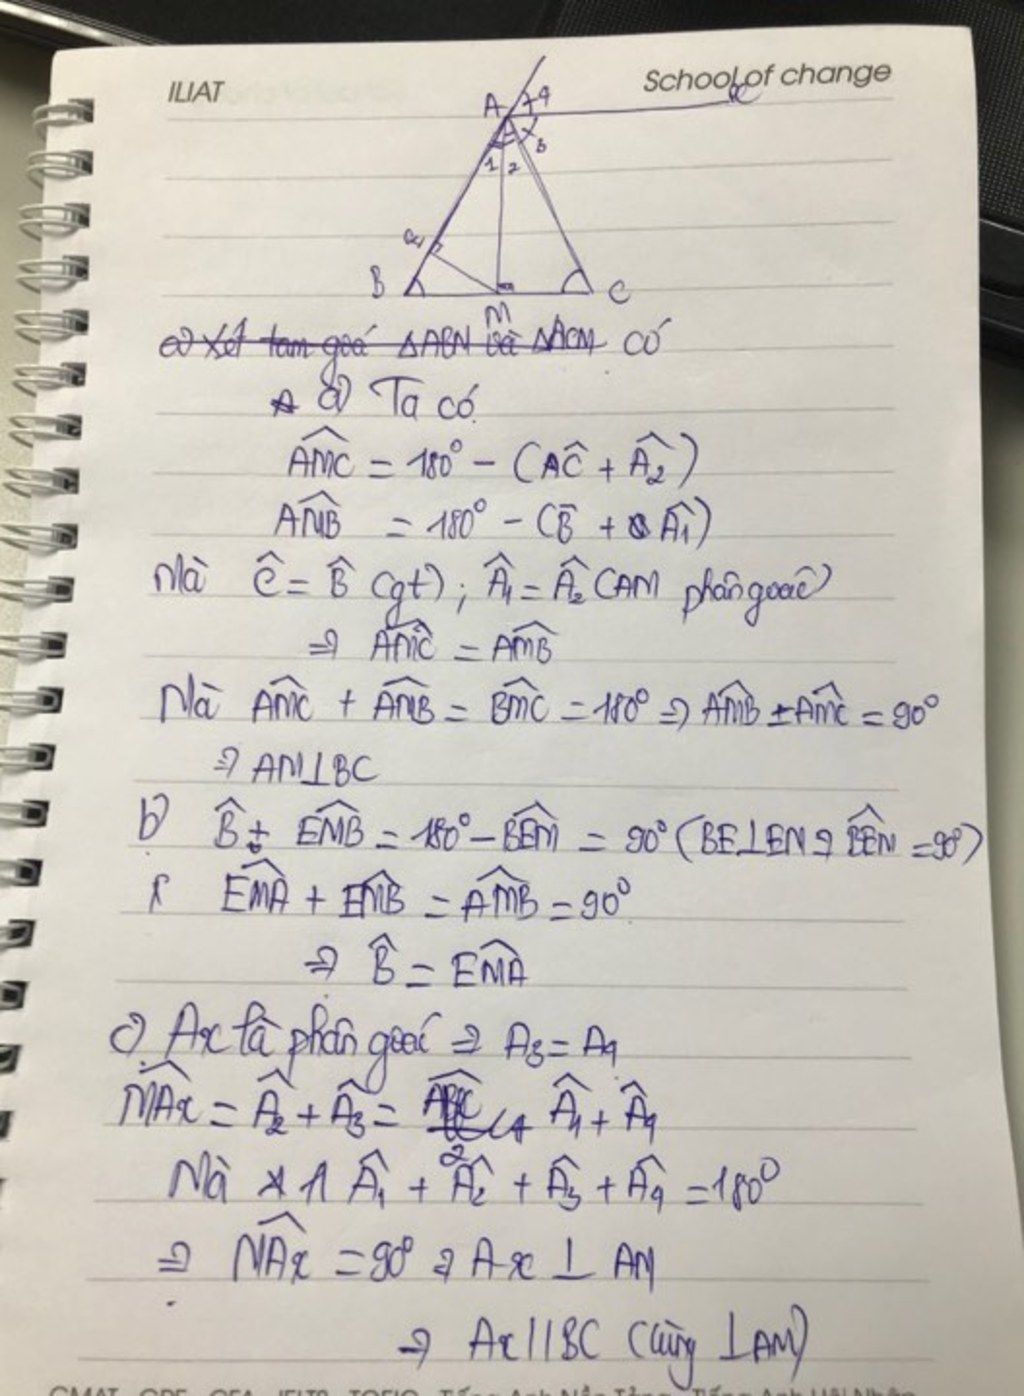 ILIAT
School of change
A 4
x
1 2 3
E
B M C
a) Xét tam giác ΔABM và ΔACM có
a) Ta có
AMC = 180° - (AC + A2)
AMB = 180° - (B + A1)
Mà C = B (gt) ; A1 = A2 (AM phân giác)
⇒ AMC = AMB
Mà AMC + AMB = BMC = 180° ⇒ AMB = AMC = 90°
⇒ AM⊥BC
b) B + EMB = 180° - BEM = 90° (BE⊥EM ⇒ BEM = 90°)
EMA + EMB = AMB = 90°
⇒ B = EMA
c) Ax là phân giác ⇒ A3 = A4
MAx = A2 + A3 = A1 + A4
Mà A1 + A2 + A3 + A4 = 180°
⇒ MAx = 90° ⇒ Ax ⊥ AM
⇒ Ax // BC (cùng ⊥ AM)